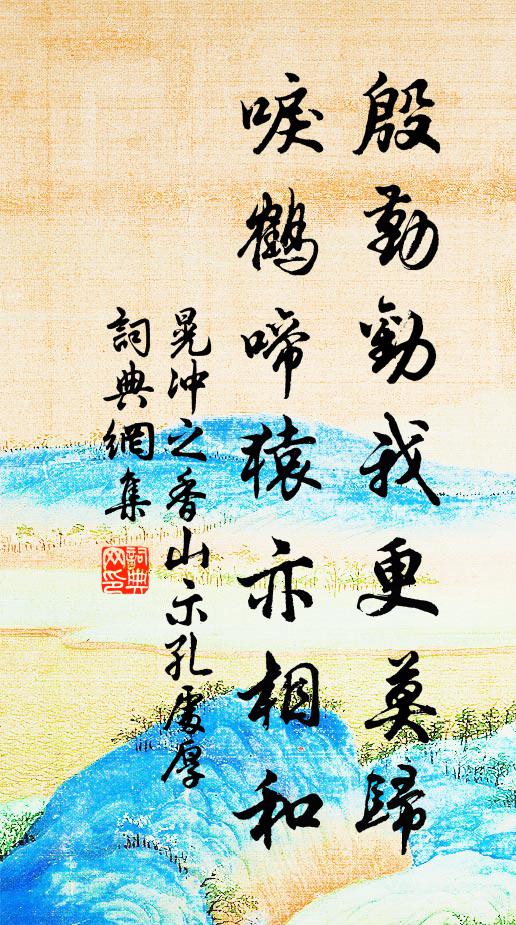 殷勤勸我更莫歸
唳鶴啼猿亦相和
晃沖之香山示孔處厚
詞典網集
詞典网印